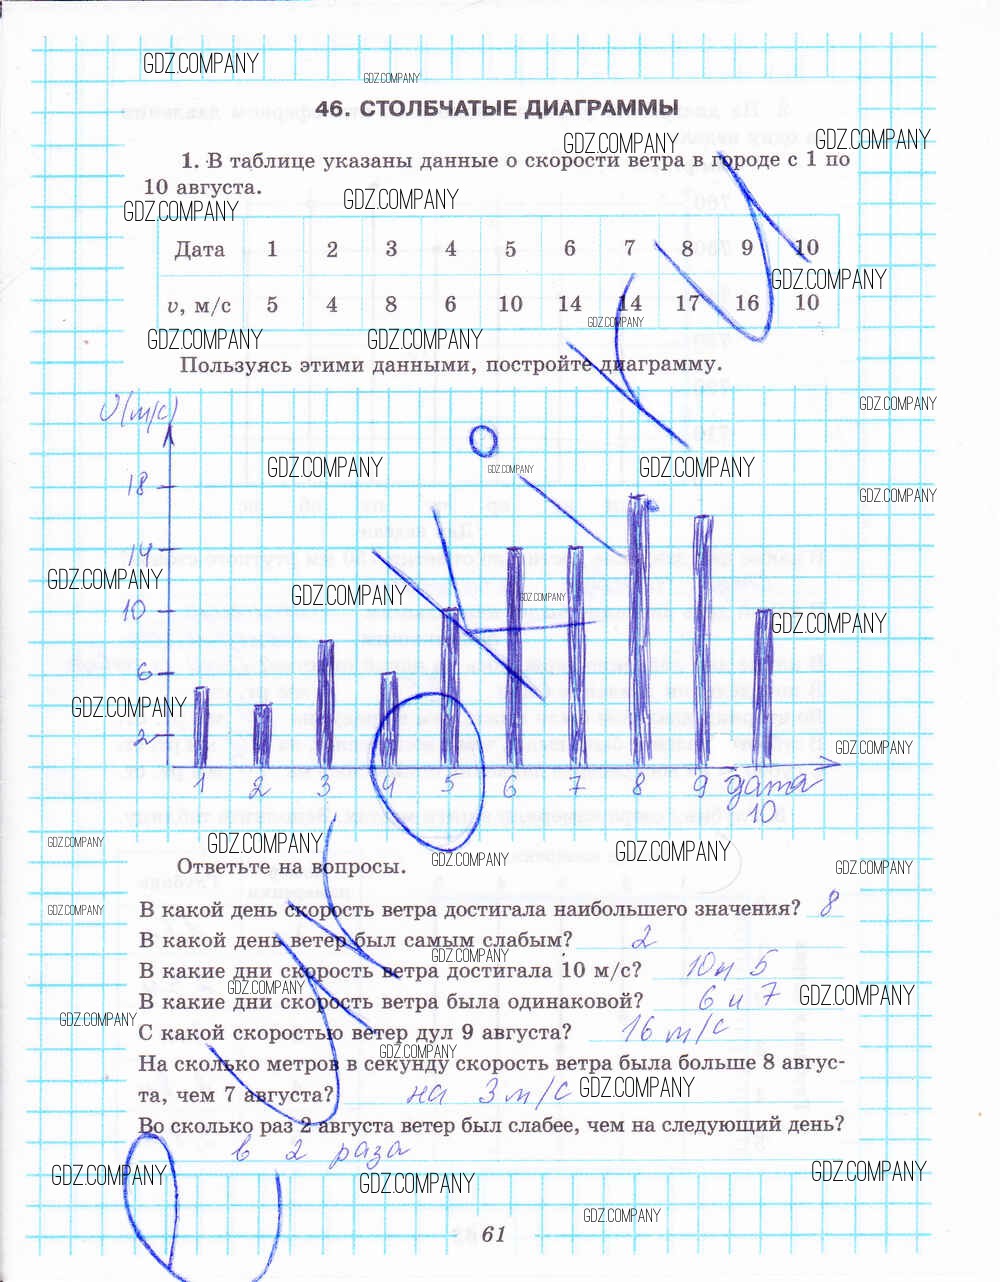 GDZ.COMPANY
GDZ.COMPANY
46. СТОЛБЧАТЫЕ ДИАГРАММЫ
GDZ.COMPANY GDZ.COMPANY
1. В таблице указаны данные о скорости ветра в городе с 1 по
10 августа.
GDZ.COMPANY GDZ.COMPANY
Дата 1 2 3 4 5 6 7 8 9 10
GDZ.COMPANY
υ, м/с 5 4 8 6 10 14 14 17 16 10
GDZ.COMPANY
GDZ.COMPANY GDZ.COMPANY
Пользуясь этими данными, постройте диаграмму.
υ(м/с)
GDZ.COMPANY
GDZ.COMPANY GDZ.COMPANY GDZ.COMPANY
18
GDZ.COMPANY
14
GDZ.COMPANY
GDZ.COMPANY GDZ.COMPANY
10
GDZ.COMPANY
6
GDZ.COMPANY
2
GDZ.COMPANY
1 2 3 4 5 6 7 8 9 дата
10
GDZ.COMPANY GDZ.COMPANY GDZ.COMPANY
GDZ.COMPANY
Ответьте на вопросы.
GDZ.COMPANY
В какой день скорость ветра достигала наибольшего значения? 8
GDZ.COMPANY
В какой день ветер был самым слабым? 2
GDZ.COMPANY
В какие дни скорость ветра достигала 10 м/с? 10 и 5
GDZ.COMPANY
В какие дни скорость ветра была одинаковой? 6 и 7
GDZ.COMPANY
GDZ.COMPANY
С какой скоростью ветер дул 9 августа? 16 м/с
GDZ.COMPANY
На сколько метров в секунду скорость ветра была больше 8 авгус-
та, чем 7 августа? на 3 м/с
GDZ.COMPANY
Во сколько раз 2 августа ветер был слабее, чем на следующий день?
в 2 раза
GDZ.COMPANY GDZ.COMPANY GDZ.COMPANY
GDZ.COMPANY
61